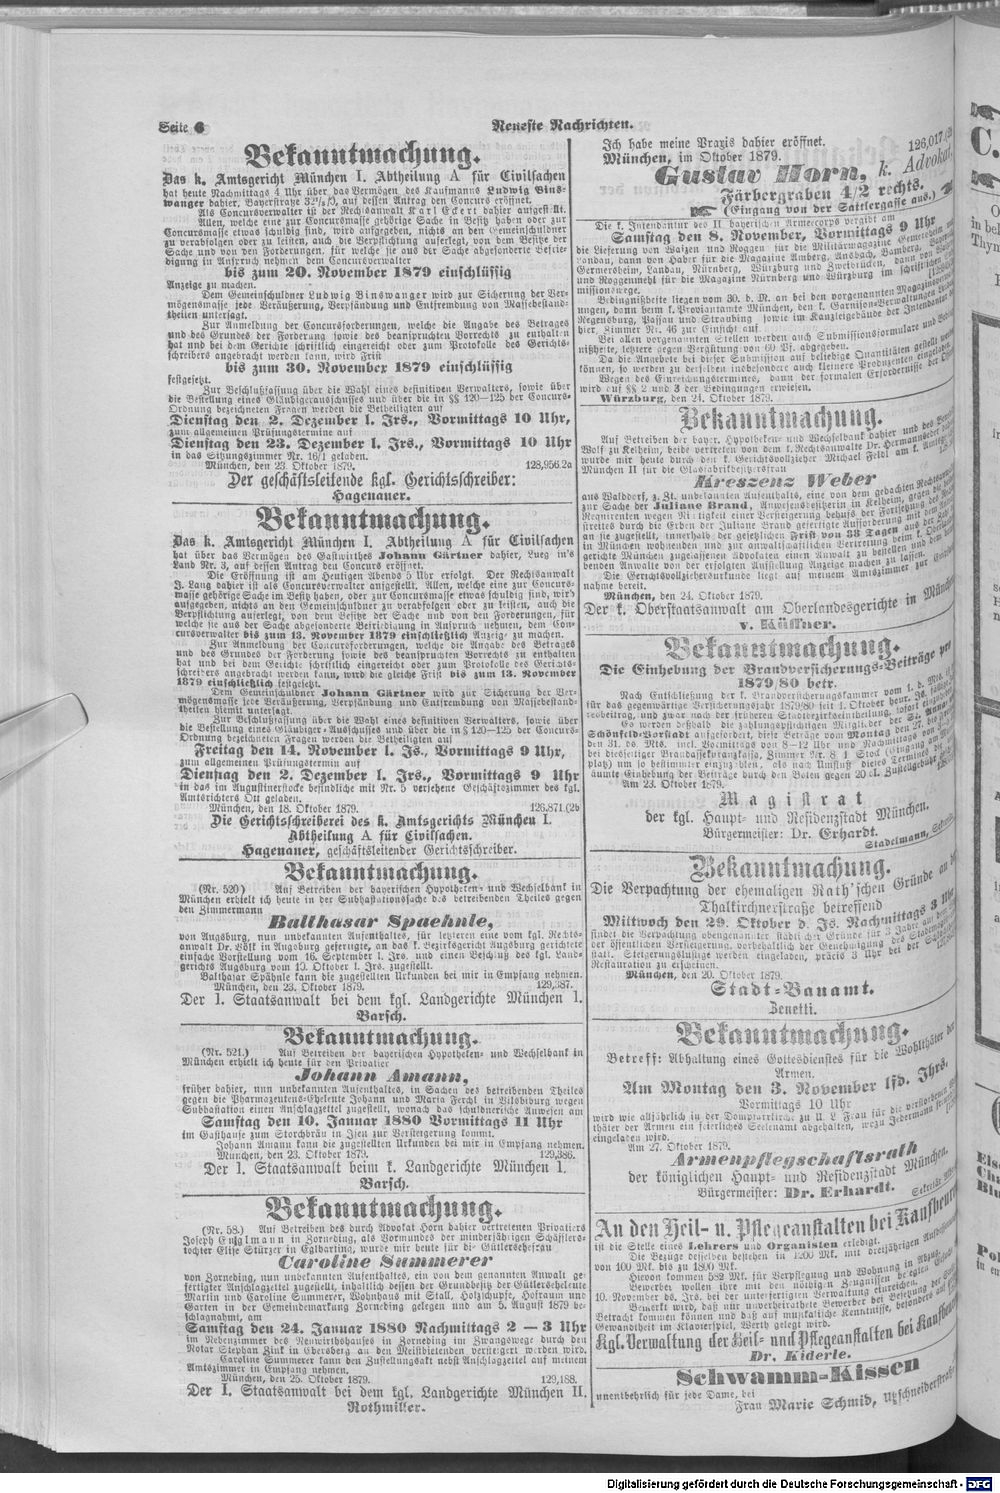 Seite 6
Neueste Nachrichten.
Bekanntmachung.
Das k. Amtsgericht München I. Abtheilung A für Civilsachen
hat heute Nachmittags 4 Uhr über das Vermögen des Kaufmanns Ludwig Bins-
wanger dahier, Bayerstraße auf dessen Antrag den Concurs eröffnet.
Als Concursverwalter ist der Rechtsanwalt Karl Eckert dahier aufgestellt.
Allen, welche eine zur Concursmasse gehörige Sache in Besitz haben oder zur
Concursmasse etwas schuldig sind, wird aufgegeben, nichts an den Gemeinschuldner
zu verabfolgen oder zu leisten, auch die Verpflichtung auferlegt, von dem Besitze der
Sache und von den Forderungen, für welche sie aus der Sache abgesonderte Befrie-
digung in Anspruch nehmen, dem Concursverwalter
bis zum 20. November 1879 einschlüssig
Anzeige zu machen.
Dem Gemeinschuldner Ludwig Binswanger wird zur Sicherung der Ver-
mögensmasse jede Veräußerung, Verpfändung und Entfremdung von Massebestand-
theilen untersagt.
Zur Anmeldung der Concursforderungen, welche die Angabe des Betrages
und des Grundes der Forderung sowie des beanspruchten Vorrechts zu enthalten
hat und bei dem Gerichte schriftlich eingereicht oder zum Protokolle des Gerichts-
schreibers angebracht werden kann, wird Frist
bis zum 30. November 1879 einschlüssig
festgesetzt.
Zur Beschlußfassung über die Wahl eines definitiven Verwalters, sowie über
die Bestellung eines Gläubigerausschusses und über die in §§ 120—125 der Concurs-
Ordnung bezeichneten Fragen werden die Betheiligten auf
Dienstag den 2. Dezember l. Jrs., Vormittags 10 Uhr,
zum allgemeinen Prüfungstermine auf
Dienstag den 23. Dezember l. Jrs., Vormittags 10 Uhr
in das Sitzungszimmer Nr. 16/1 geladen.
München, den 23. Oktober 1879. 128,956.2a
Der geschäftsleitende kgl. Gerichtsschreiber:
Hagenauer.
Bekanntmachung.
Das k. Amtsgericht München I. Abtheilung A für Civilsachen
hat über das Vermögen des Gastwirthes Johann Gärtner dahier, Lueg in's
Land Nr. 3, auf dessen Antrag den Concurs eröffnet.
Die Eröffnung ist am Heutigen Abend 5 Uhr erfolgt. Der Rechtsanwalt
J. Lang dahier ist als Concursverwalter aufgestellt. Allen, welche eine zur Concurs-
masse gehörige Sache im Besitz haben, oder zur Concursmasse etwas schuldig sind, wird
aufgegeben, nichts an den Gemeinschuldner zu verabfolgen oder zu leisten, auch die
Verpflichtung auferlegt, von dem Besitze der Sache und von den Forderungen, für
welche sie aus der Sache abgesonderte Befriedigung in Anspruch nehmen, dem Con-
cursverwalter bis zum 13. November 1879 einschließlich Anzeige zu machen.
Zur Anmeldung der Concursforderungen, welche die Angabe des Betrages
und des Grundes der Forderung sowie des beanspruchten Vorrechts zu enthalten
hat und bei dem Gerichte schriftlich eingereicht oder zum Protokolle des Gerichts-
schreibers angebracht werden kann, wird die gleiche Frist bis zum 13. November
1879 einschließlich festgesetzt.
Dem Gemeinschuldner Johann Gärtner wird zur Sicherung der Ver-
mögensmasse jede Veräußerung, Verpfändung und Entfremdung von Massebestand-
theilen hiemit untersagt.
Zur Beschlußfassung über die Wahl eines definitiven Verwalters, sowie über
die Bestellung eines Gläubiger-Ausschusses und über die in § 120—125 der Concurs-
Ordnung bezeichneten Fragen werden die Betheiligten auf
Freitag den 14. November l. Js., Vormittags 9 Uhr,
zum allgemeinen Prüfungstermin auf
Dienstag den 2. Dezember l. Jrs., Vormittags 9 Uhr
in das im Augustinerstocke befindliche mit Nr. 5 versehene Geschäftszimmer des kgl.
Amtsrichters Ott geladen.
München, den 18. Oktober 1879. 126,871.(2b
Die Gerichtsschreiberei des k. Amtsgerichts München I.
Abtheilung A für Civilsachen.
Hagenauer, geschäftsleitender Gerichtsschreiber.
Bekanntmachung.
(Nr. 520) Auf Betreiben der bayerischen Hypotheken- und Wechselbank in
München erhielt ich heute in der Subhastationssache des betreibenden Theiles gegen
den Zimmermann
Balthasar Spaehnle,
von Augsburg, nun unbekannten Aufenthaltes, für letzteren eine vom kgl. Rechts-
anwalt Dr. Völk in Augsburg gefertigte, an das k. Bezirksgericht Augsburg gerichtete
einfache Vorstellung vom 16. September l. Jrs. und einen Beschluß des kgl. Land-
gerichts Augsburg vom 10. Oktober l. Jrs. zugestellt.
Balthasar Spähnle kann die zugestellten Urkunden bei mir in Empfang nehmen.
München, den 23. Oktober 1879. 129,387.
Der I. Staatsanwalt bei dem kgl. Landgerichte München I.
Barsch.
Bekanntmachung.
(Nr. 521.) Auf Betreiben der bayerischen Hypotheken- und Wechselbank in
München erhielt ich heute für den Privatier
Johann Amann,
früher dahier, nun unbekannten Aufenthaltes, in Sachen des betreibenden Theiles
gegen die Pharmazeutens-Eheleute Johann und Maria Ferchl in Vilsbiburg wegen
Subhastation einen Anschlagzettel zugestellt, wonach das schuldnerische Anwesen am
Samstag den 10. Januar 1880 Vormittags 11 Uhr
im Gasthause zum Storchbräu in Isen zur Versteigerung kommt.
Johann Amann kann die zugestellten Urkunden bei mir in Empfang nehmen.
München, den 23. Oktober 1879. 129,386.
Der I. Staatsanwalt beim k. Landgerichte München I.
Barsch.
Bekanntmachung.
(Nr. 58.) Auf Betreiben des durch Advokat Horn dahier vertretenen Privatiers
Joseph Entzlmann in Zorneding, als Vormundes der minderjährigen Schäfflers-
tochter Elise Stürzer in Eglharting, wurde mir heute für die Gütlersehefrau
Caroline Summerer
von Zorneding, nun unbekannten Aufenthaltes, ein von dem genannten Anwalt ge-
fertigter Anschlagzettel zugestellt, inhaltlich dessen der Grundbesitz der Gütlerseheleute
Martin und Caroline Summerer, Wohnhaus mit Stall, Holzschupfe, Hofraum und
Garten in der Gemeindemarkung Zorneding gelegen und am 5. August 1879 be-
schlagnahmt, am
Samstag den 24. Januar 1880 Nachmittags 2—3 Uhr
im Nebenzimmer des Neuwirthshauses in Zorneding im Zwangswege durch den
Notar Stephan Zink in Ebersberg an den Meistbietenden versteigert werden wird.
Caroline Summerer kann den Zustellungsakt nebst Anschlagzettel auf meinem
Amtszimmer in Empfang nehmen.
München, den 25. Oktober 1879. 129,188.
Der I. Staatsanwalt bei dem kgl. Landgerichte München II.
Rothmiller.
Ich habe meine Praxis dahier eröffnet.
München, im Oktober 1879. 126,017.(2
Gustav Horn, k. Advokat,
Färbergraben 4/2 rechts.
(Eingang von der Sattlergasse aus.)
Die k. Intendantur des II bayerischen Armeecorps vergibt am
Samstag den 8. November, Vormittags 9 Uhr
die Lieferung von Waizen und Roggen für die Militärmagazine Germersheim und
Landau, dann von Haber für die Magazine Amberg, Ansbach, Bamberg,
Germersheim, Landau, Nürnberg, Würzburg und Zweibrücken, dann von
und Roggenmehl für die Magazine Nürnberg und Würzburg im schriftlichen
missionswege.
Bedingnißhefte liegen vom 30. d. M. an bei den vorgenannten Magazinsverwal-
tungen, dann beim k. Proviantamte München, den k. Garnison-Verwaltungen
Regensburg, Passau und Straubing sowie im Kanzleigebäude der Intendantur
hier, Zimmer Nr. 46 zur Einsicht auf.
Bei allen vorgenannten Stellen werden auch Submissionsformulare und Beding-
nißhefte, letztere gegen Vergütung von 60 Pf. abgegeben.
Da die Angebote bei dieser Submission auf beliebige Quantitäten gestellt werden
können, so werden zu derselben insbesondere auch kleinere Produzenten eingeladen.
Wegen des Einreichungstermines, dann der formalen Erfordernisse der
wird auf §§ 2 und 3 der Bedingungen erwiesen.
Würzburg, den 24. Oktober 1879.
Bekanntmachung.
Auf Betreiben der bayer. Hypotheken- und Wechselbank dahier und des
Wolf zu Kelheim, beide vertreten von dem k. Rechtsanwalte Dr. Hermann
wurde mir heute durch den k. Gerichtsvollzieher Michael Feldl am k. Amtsgerichte
München II für die Glasfabrikbesitzersfrau
Kreszenz Weber
aus Walddorf, z. Zt. unbekannten Aufenthalts, eine von dem gedachten Rechtsanwalte
zur Sache der Juliane Brand, Anwesensbesitzerin in Kelheim, gegen die
Requirenten wegen Nichtigkeit einer Versteigerung behufs der Fortsetzung des
streites durch die Erben der Juliane Brand gefertigte Aufforderung mit dem
an sie zugestellt, innerhalb der gesetzlichen Frist von 38 Tagen aus der Zahl der
in München wohnenden und zur anwaltschaftlichen Vertretung beim k. Oberlandes-
gerichte München zugelassenen Advokaten einen Anwalt zu bestellen und dem
benden Anwalte von der erfolgten Aufstellung Anzeige machen zu lassen.
Die Gerichtsvollziehersurkunde liegt auf meinem Amtszimmer zur
nahme bereit.
München, den 24. Oktober 1879.
Der k. Oberstaatsanwalt am Oberlandesgerichte in München
v. Küffner.
Bekanntmachung.
Die Einhebung der Brandversicherungs-Beiträge pro
1879/80 betr.
Nach Entschließung der k. Brandversicherungskammer vom 1. d. Mts. ist
für das gegenwärtige Versicherungsjahr 1879/80 seit 1. Oktober heur. Js. fällige
und zwar nach der früheren Stadtbezirkseintheilung, sofort
Es werden deßhalb die zahlungspflichtigen Mitglieder der
Schönfeld-Vorstadt aufgefordert, diese Beträge vom Montag den 27. bis
den 31. ds. Mts. incl. Vormittags von 8—12 Uhr und Nachmittags von
bei diesseitiger Brandassekuranzkassa, Zimmer Nr. 8 I. Stock (Eingang am
platz) um so bestimmter einzuzahlen, als nach Umfluß dieses Termines
säumte Einhebung der Beiträge durch den Boten gegen 20 Pf. Zustellgebühr
Am 23. Oktober 1879.
Magistrat
der kgl. Haupt- und Residenzstadt München.
Bürgermeister: Dr. Erhardt.
Stadelmann,
Bekanntmachung.
Die Verpachtung der ehemaligen Rath'schen Gründe an der
Thalkirchnerstraße betreffend
Mittwoch den 29. Oktober d. Js. Nachmittags 3 Uhr
findet die Verpachtung obengenannter städtischer Gründe für 3 Jahre auf dem
der öffentlichen Versteigerung, vorbehaltlich der Genehmigung des Stadtmagistrats
statt. Steigerungslustige werden eingeladen, präcis 3 Uhr bei der
Restauration zu erscheinen.
München, den 20. Oktober 1879.
Stadt-Bauamt.
Zenetti.
Bekanntmachung.
Betreff: Abhaltung eines Gottesdienstes für die Wohlthäter der
Armen.
Am Montag den 3. November lfd. Jhrs.
Vormittags 10 Uhr
wird wie alljährlich in der Dompfarrkirche zu U. L. Frau für die verstorbenen
thäter der Armen ein feierliches Seelenamt abgehalten, wozu Jedermann
eingeladen wird.
Am 27. Oktober 1879.
Armenpflegschaftsrath
der königlichen Haupt- und Residenzstadt München.
Bürgermeister: Dr. Erhardt.
An den Heil- u. Pflegeanstalten bei Kaufbeuren
ist die Stelle eines Lehrers und Organisten erledigt.
Die Bezüge desselben bestehen in 1200 Mk. mit dreijährigen Aufbesserungen
von 100 Mk. bis zu 1800 Mk.
Hievon kommen 582 Mk. für Verpflegung und Wohnung in Abzug.
Bewerber wollen ihre mit den nöthigen Zeugnissen belegten
10. November ds. Jrs. bei der unterfertigten Verwaltung einreichen.
Bemerkt wird, daß nur unverheirathete Bewerber bei Besetzung der
Betracht kommen können und daß auf musikalische Kenntnisse, besonders auf
Gewandtheit im Klavierspiel, Werth gelegt wird.
Kgl. Verwaltung der Heil- und Pflegeanstalten bei Kaufbeuren.
Dr. Kiderle.
Schwamm-Kissen
unentbehrlich für jede Dame, bei
Frau Marie Schmid, Utzschneiderstraße
Digitalisierung gefördert durch die Deutsche Forschungsgemeinschaft - DFG